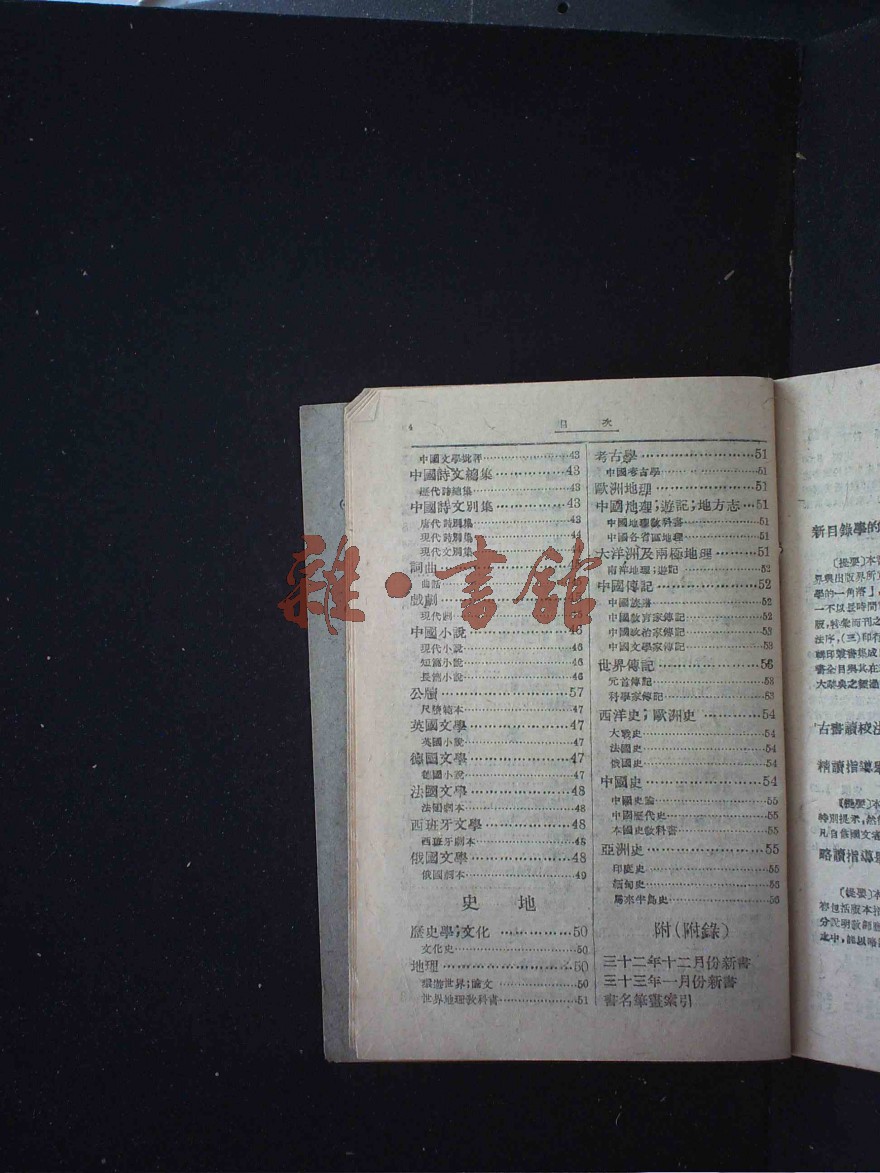 4
目 次
中國文學批評 43
中國詩文總集 43
歷代詩總集 43
中國詩文別集 43
唐代詩別集 43
現代詩別集 44
現代文別集
詞曲
曲話
戲劇
現代劇
中國小說 46
現代小說 46
短篇小說 46
長篇小說 46
公牘 57
尺牘範本 47
英國文學 47
英國小說 47
德國文學 47
德國小說 47
法國文學 48
法國劇本 48
西班牙文學 48
西班牙劇本 48
俄國文學 48
俄國劇本 49
史 地
歷史學;文化 50
文化史 50
地理 50
環遊世界;論文 50
世界地理教科書 51
考古學 51
中國考古學 51
歐洲地理 51
中國地理;遊記;地方志 51
中國地理教科書 51
中國各省區地理 51
大洋洲及兩極地理 51
南洋地理;遊記 52
中國傳記 52
中國族譜 52
中國教育家傳記 52
中國政治家傳記 53
中國文學家傳記 53
世界傳記 56
元首傳記 53
科學家傳記 53
西洋史;歐洲史 54
大戰史 54
法國史 54
俄國史 54
中國史 54
中國史論 55
中國歷代史 55
本國史教科書 55
亞洲史 55
印度史 55
緬甸史 55
馬來半島史 56
附(附錄)
三十二年十二月份新書
三十三年一月份新書
書名筆畫索引
雜·書館
新目錄學的
〔提要〕本書
界與出版界所
學的一角落」
一不以長時間
版,轉彙而刊之
法序,(三)印存
轉印叢書集成
書全目與其在
古書讀校法
精讀指導舉
〔提要〕本
特別提示,然
凡自舊國文
略讀指導舉
〔提要〕本
容包括版本
分說明教師
之中,能以略